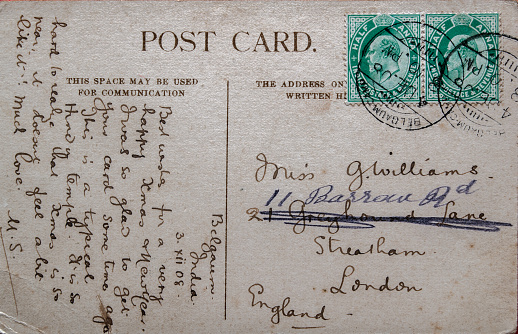 POST CARD.
THIS SPACE MAY BE USED
FOR COMMUNICATION
THE ADDRESS ON
WRITTEN H
HALF ANNA
HALF ANNA
BELGAUM
BELGAUM
Belgaum
India
3. XII. 08.
Best wishes for a very
happy Xmas & New Year.
I was so glad to get
your card some time ago
This is a typical
Hindu temple. It is
hard to realize that Xmas is so
near, it doesn't feel a bit
like it!! Much love.
M. S.
Miss G Williams.
11 Barrow Rd
21 Greyhound Lane
Streatham.
London
England.